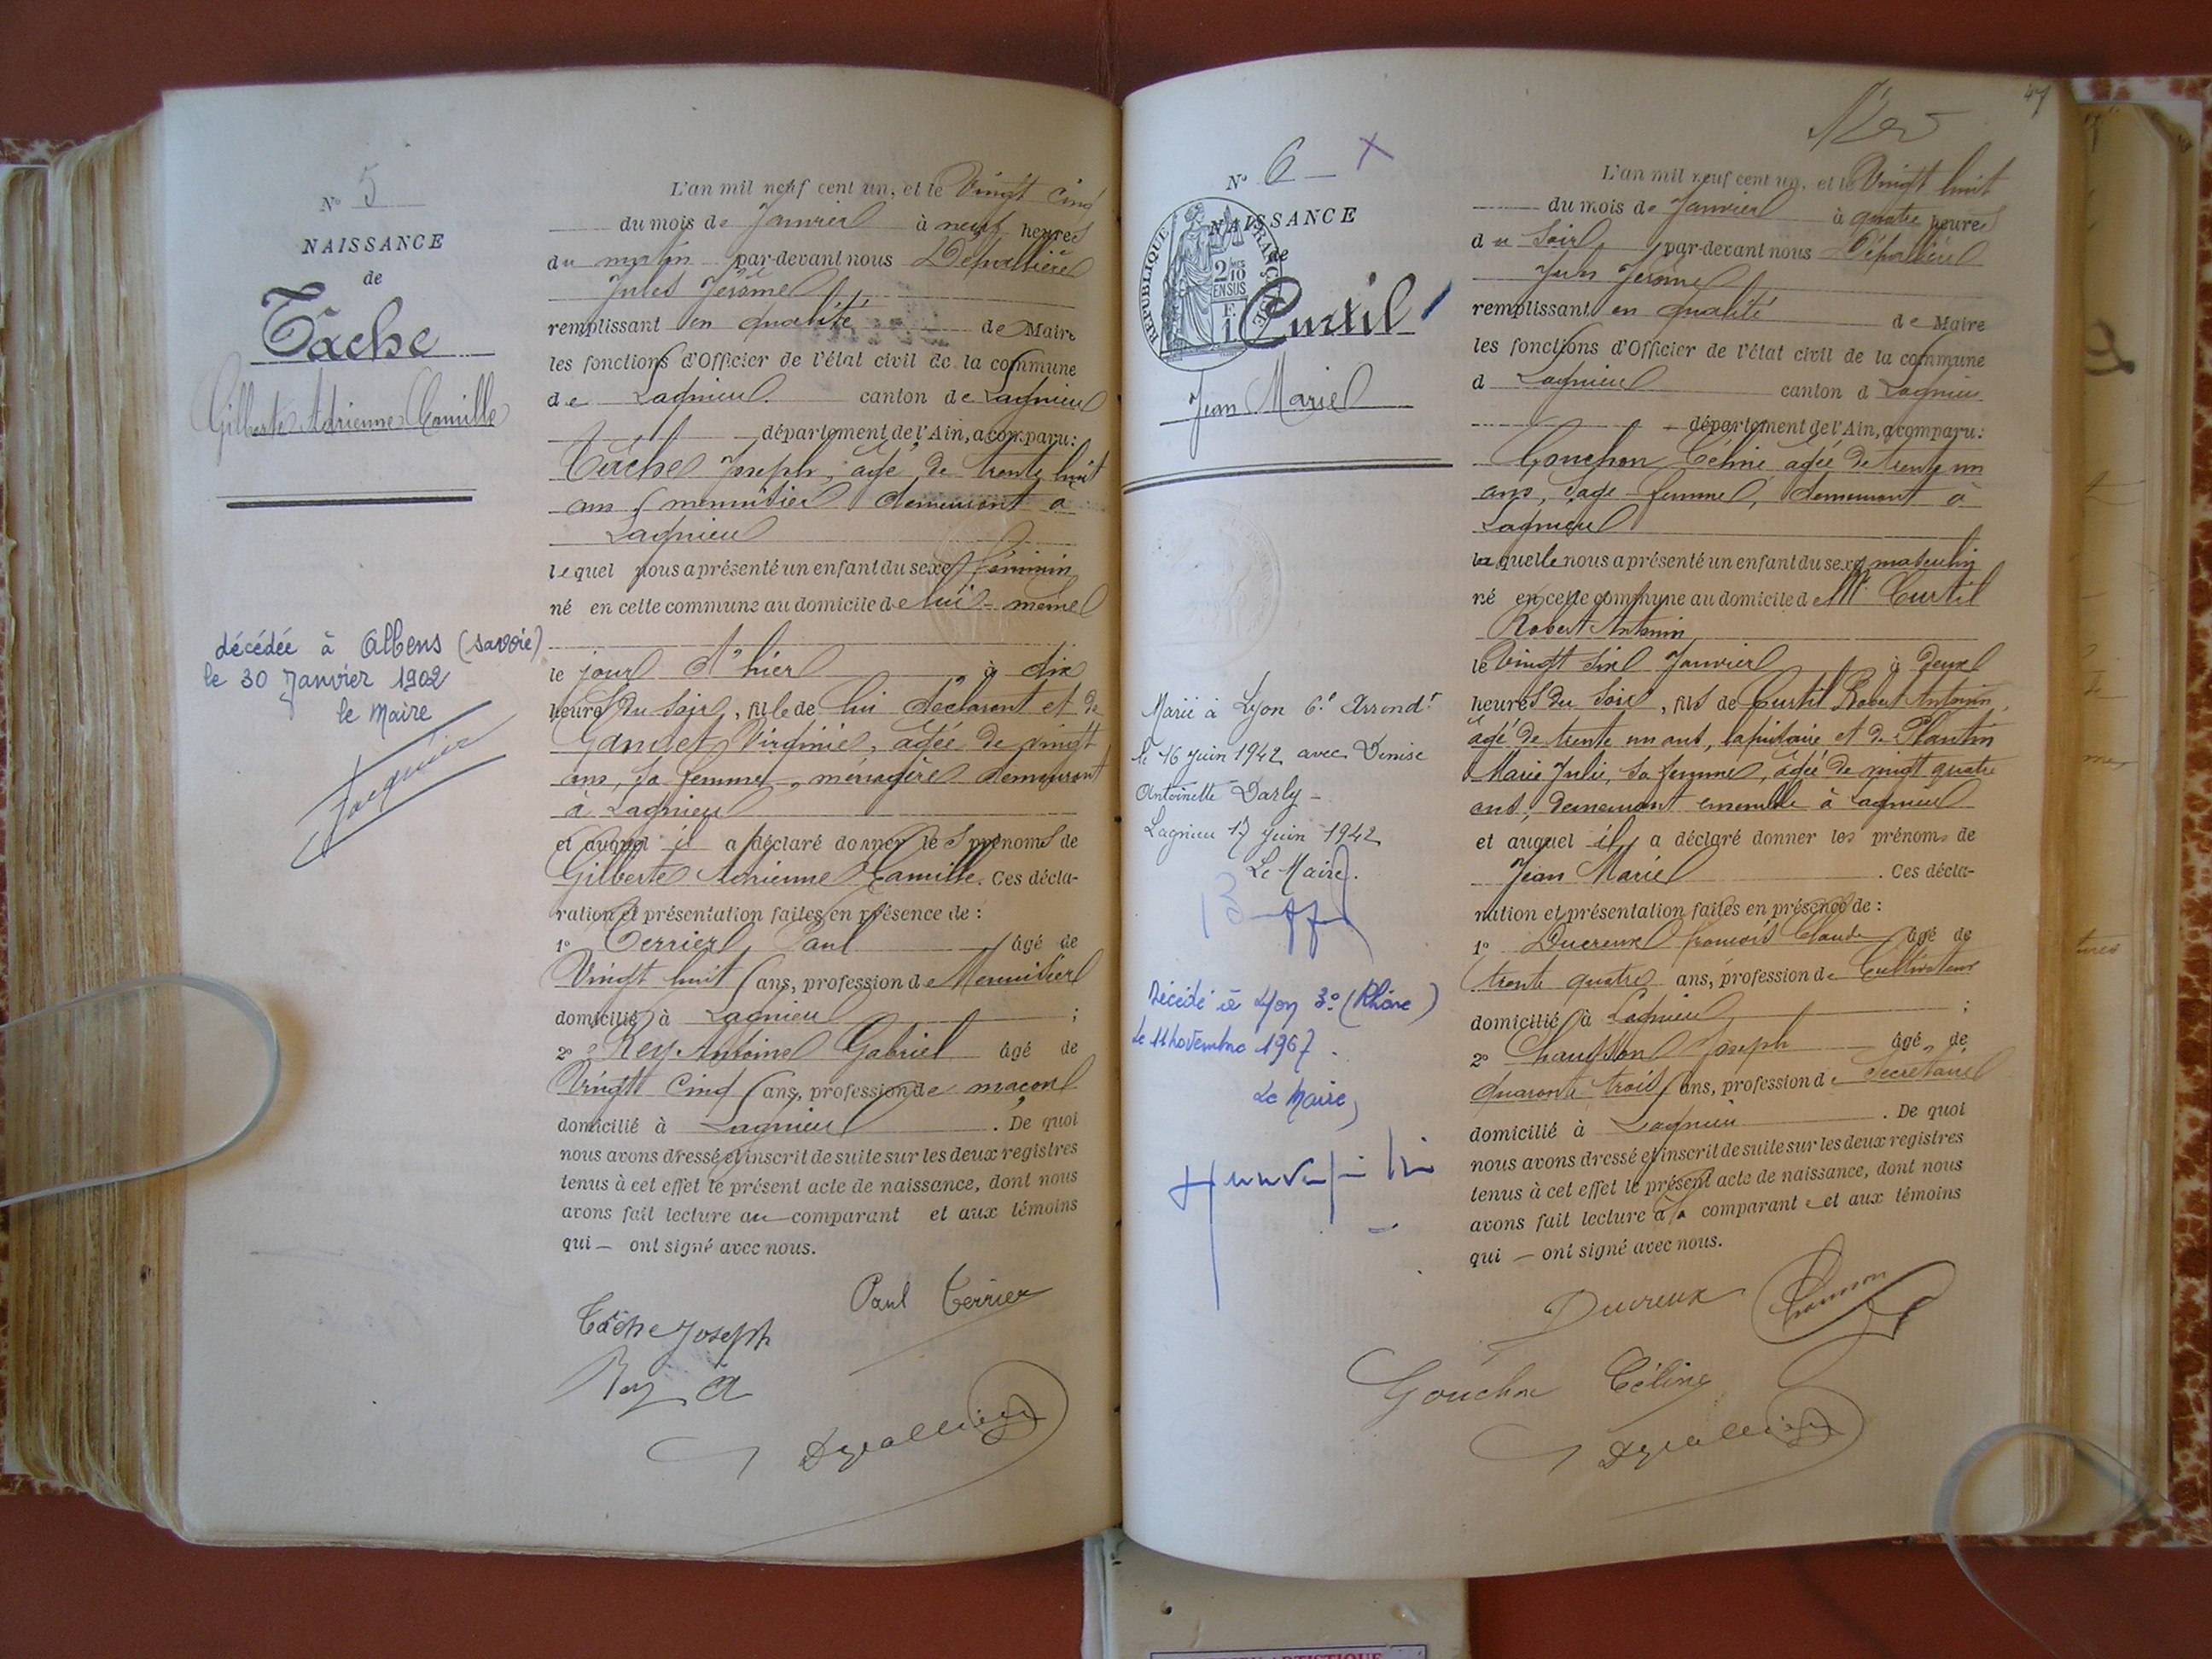 N° 5
NAISSANCE
de
Tâche
Gilberte Adrienne Camille
décédée à Albens (Savoie)
le 30 Janvier 1902
le Maire
Jacquier
L'an mil neuf cent un, et le Vingt cinq
du mois de Janvier à neuf heures
du matin par-devant nous Dépallière
Jules Jérôme
remplissant en qualité de Maire
les fonctions d'Officier de l'état civil de la commune
de Lagnieu canton de Lagnieu
département de l'Ain, a comparu:
Tâche Joseph, âgé de trente huit
ans, menuisier demeurant à
Lagnieu
lequel nous a présenté un enfant du sexe féminin
né en cette commune au domicile de lui-même
le jour d'hier à dix
heures du soir, fille de lui déclarant et de
Virginie, âgée de vingt
ans, sa femme, ménagère demeurant
à Lagnieu
et auquel il a déclaré donner les prénoms de
Gilberte Adrienne Camille. Ces décla-
ration et présentation faites en présence de :
1° Terrier Paul âgé de
Vingt huit ans, profession de Menuisier
domicilié à Lagnieu ;
2° Rey Antoine Gabriel âgé de
Vingt cinq ans, profession de maçon
domicilié à Lagnieu. De quoi
nous avons dressé et inscrit de suite sur les deux registres
tenus à cet effet le présent acte de naissance, dont nous
avons fait lecture au comparant et aux témoins
qui — ont signé avec nous.
Paul Terrier
Tâche Joseph
Rey A
47
N° 6 X
NAISSANCE
de
REPUBLIQUE FRANÇAISE
2/10
EN SUS
1 F.
Curtil
Jean Marie
Marié à Lyon 6e Arrondt
le 16 juin 1942 avec Denise
Antoinette Darly -
Lagnieu 17 juin 1942
Le Maire.
Décédé à Lyon 3° (Rhône)
le 11 novembre 1967.
Le Maire,
L'an mil neuf cent un, et le Vingt huit
du mois de Janvier à quatre heures
du soir par-devant nous Dépallière
Jules Jérôme
remplissant en qualité de Maire
les fonctions d'Officier de l'état civil de la commune
d Lagnieu canton d Lagnieu
département de l'Ain, a comparu:
Gouchon Céline âgée de trente un
ans, sage-femme, demeurant à
Lagnieu
laquelle nous a présenté un enfant du sexe masculin
né en cette commune au domicile de Mr Curtil
Robert Antonin
le Vingt six Janvier à deux
heures du soir, fils de Curtil Robert Antonin,
âgé de trente un ans, lapidaire et de Plantin
Marie Julie, sa femme, âgée de vingt quatre
ans, demeurant ensemble à Lagnieu
et auquel il a déclaré donner les prénoms de
Jean Marie. Ces décla-
ration et présentation faites en présence de :
1° Ducreux François Claude âgé de
trente quatre ans, profession de Cultivateur
domicilié à Lagnieu ;
2° Joseph âgé de
quarante trois ans, profession de Secrétaire
domicilié à Lagnieu. De quoi
nous avons dressé et inscrit de suite sur les deux registres
tenus à cet effet le présent acte de naissance, dont nous
avons fait lecture à la comparante et aux témoins
qui — ont signé avec nous.
Ducreux
Gouchon Céline